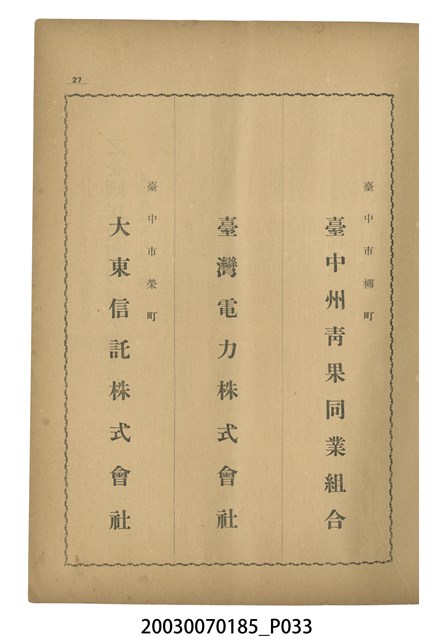 27
臺中市柳町
臺中州靑果同業組合
臺灣電力株式會社
臺中市榮町
大東信託株式會社
20030070185_P033